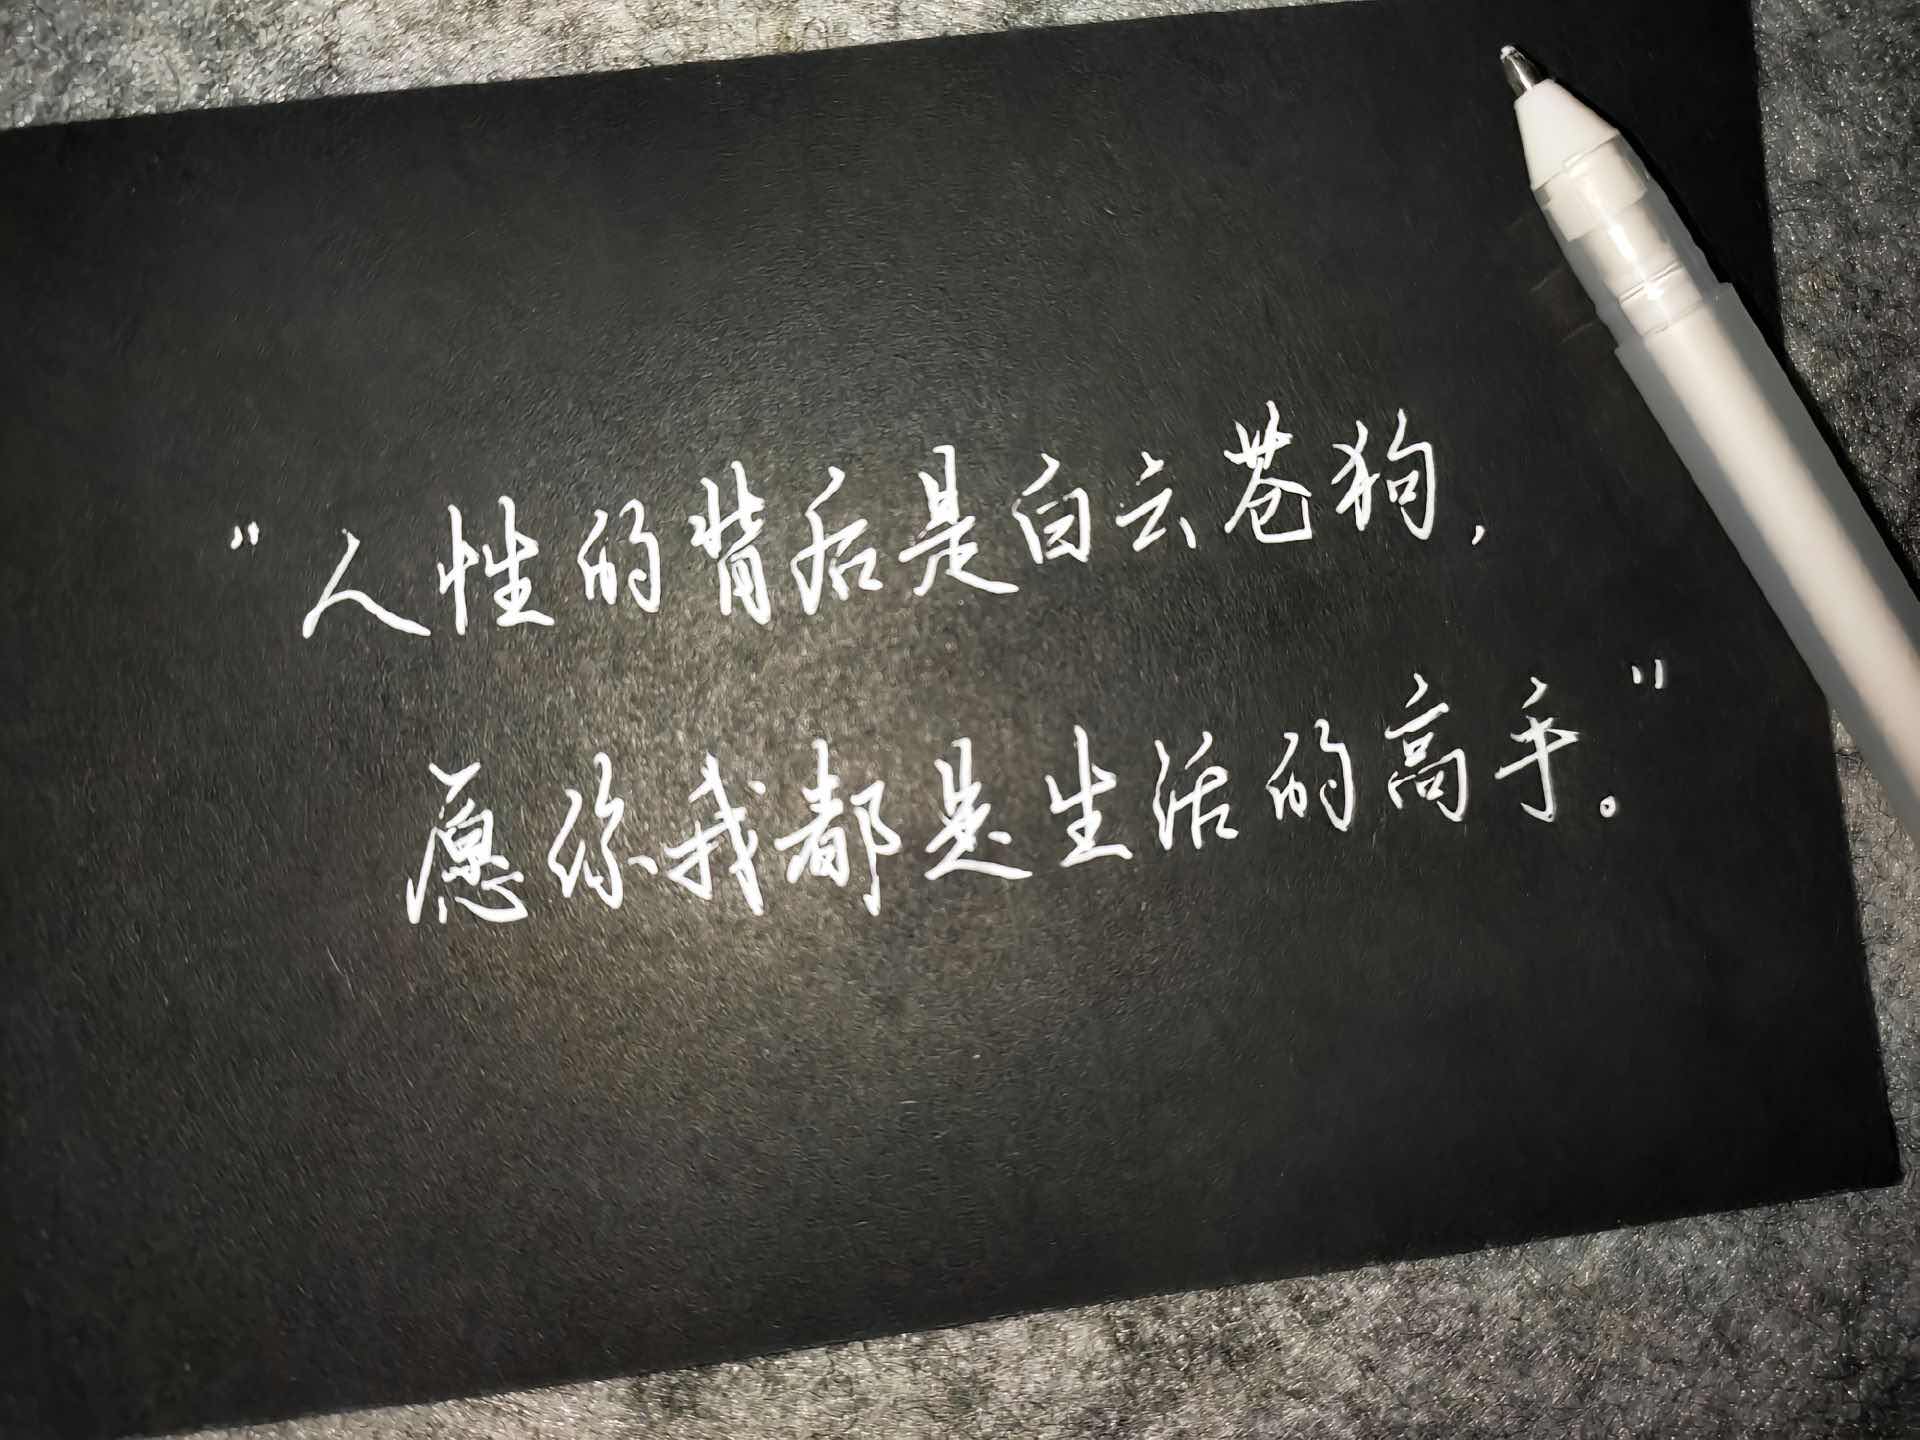 “人性的背后是白云苍狗，
愿你我都是生活的高手。”